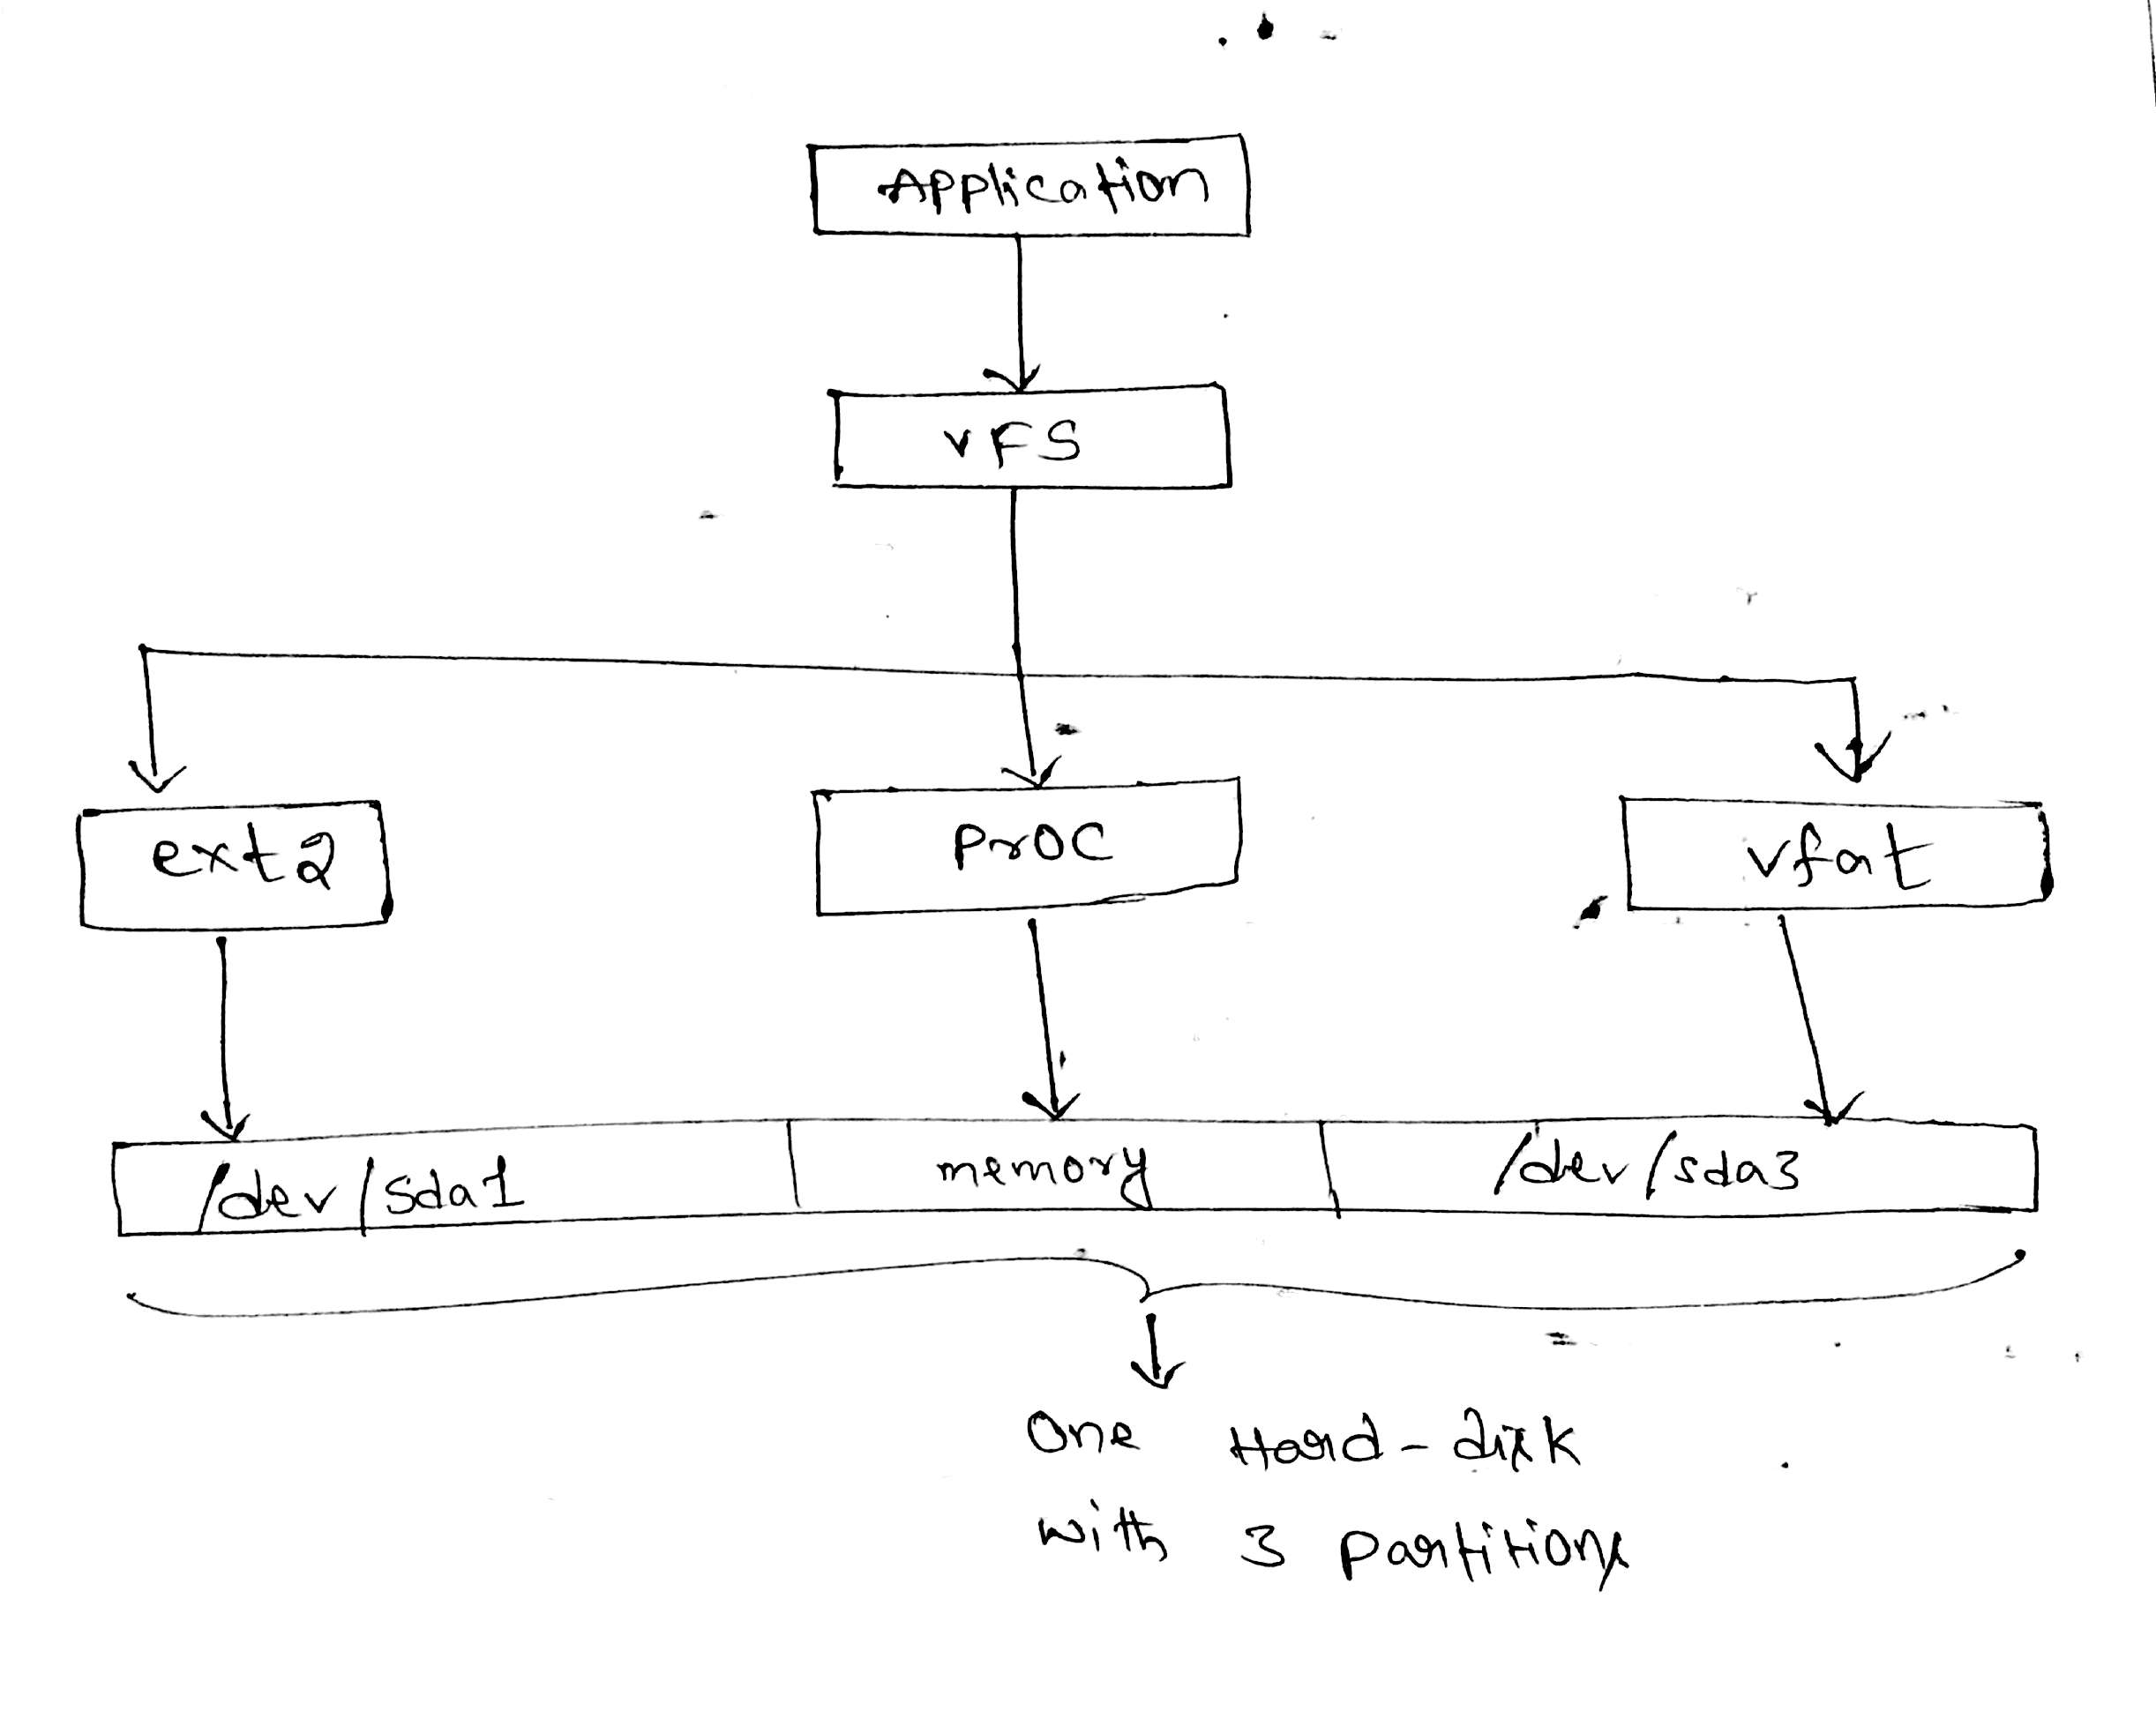 Application
VFS
ext2
Proc
vfat
/dev/sda1
memory
/dev/sda3
One Hard-disk
with 3 Partitions